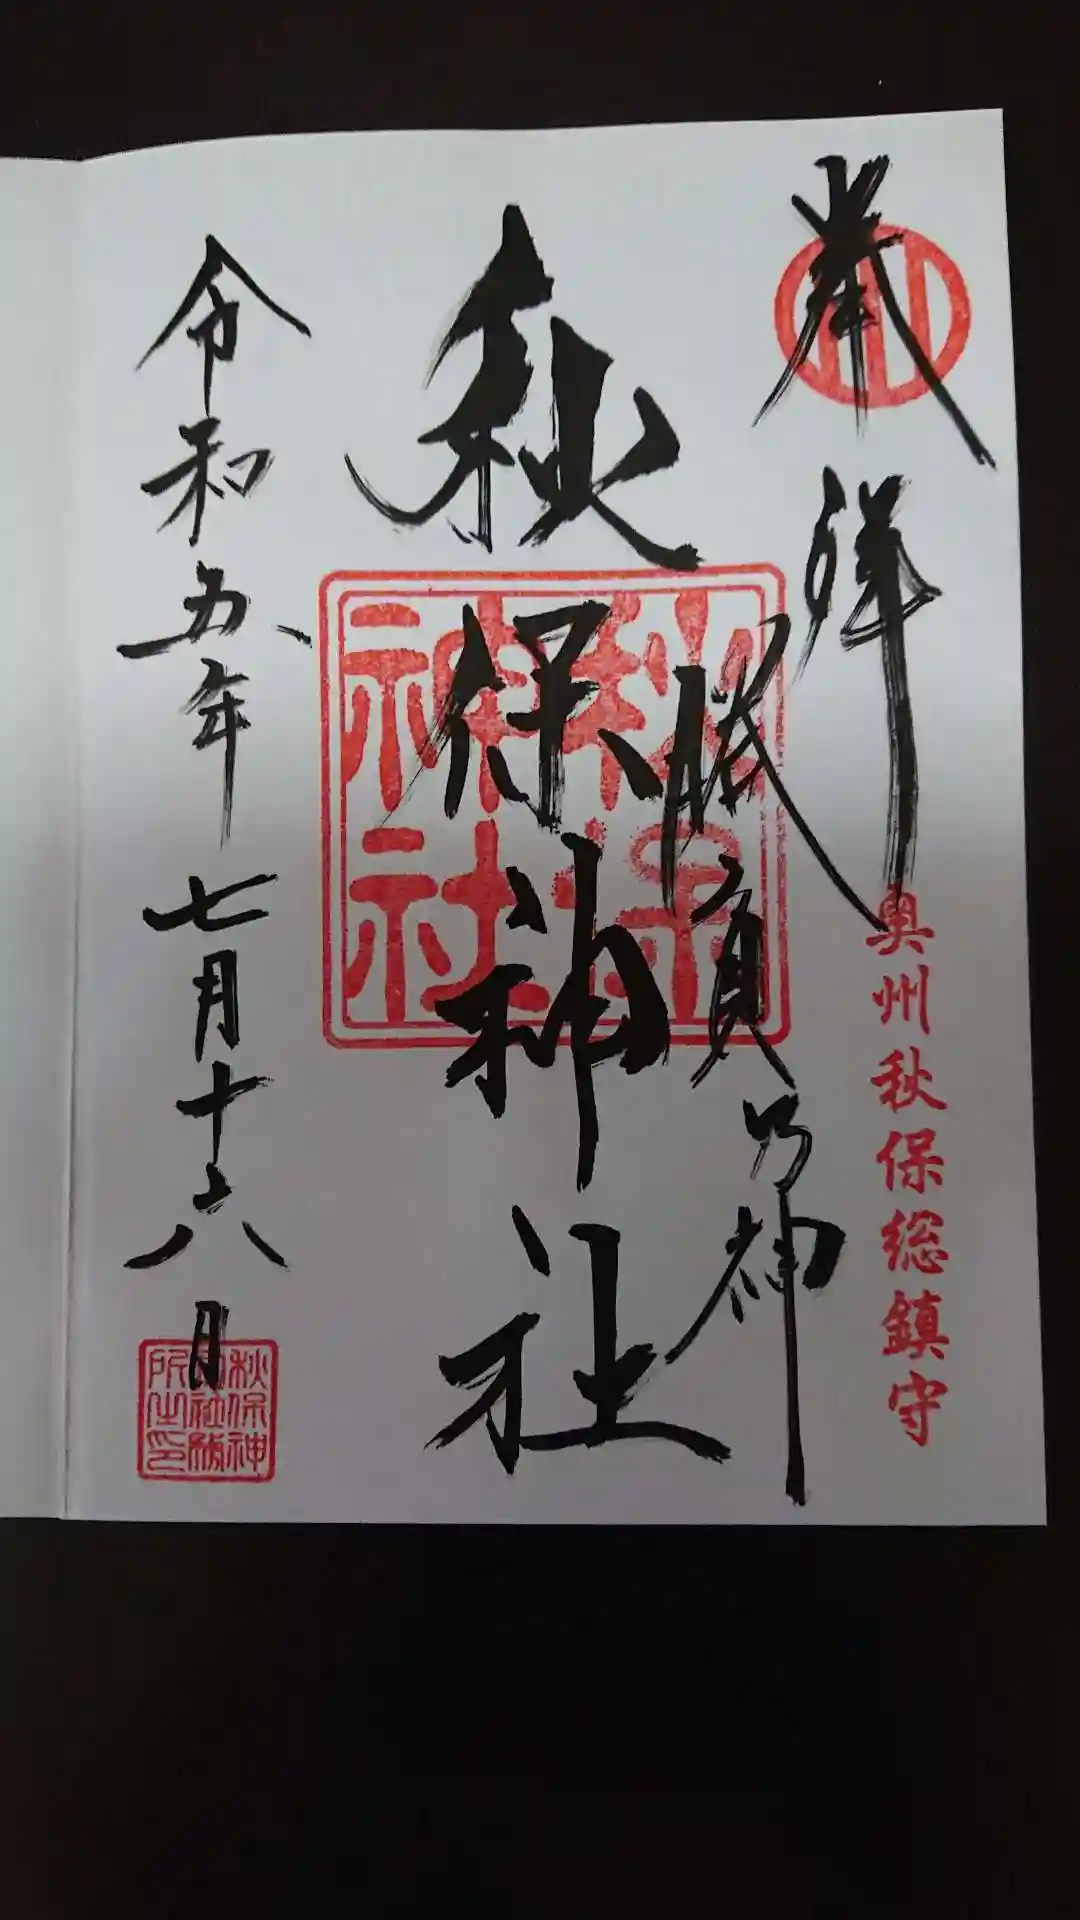 奉拝
奥州秋保総鎮守
勝負乃神
秋保神社
秋保
神社
令和五年七月十六日
秋保神
社社務
所之印